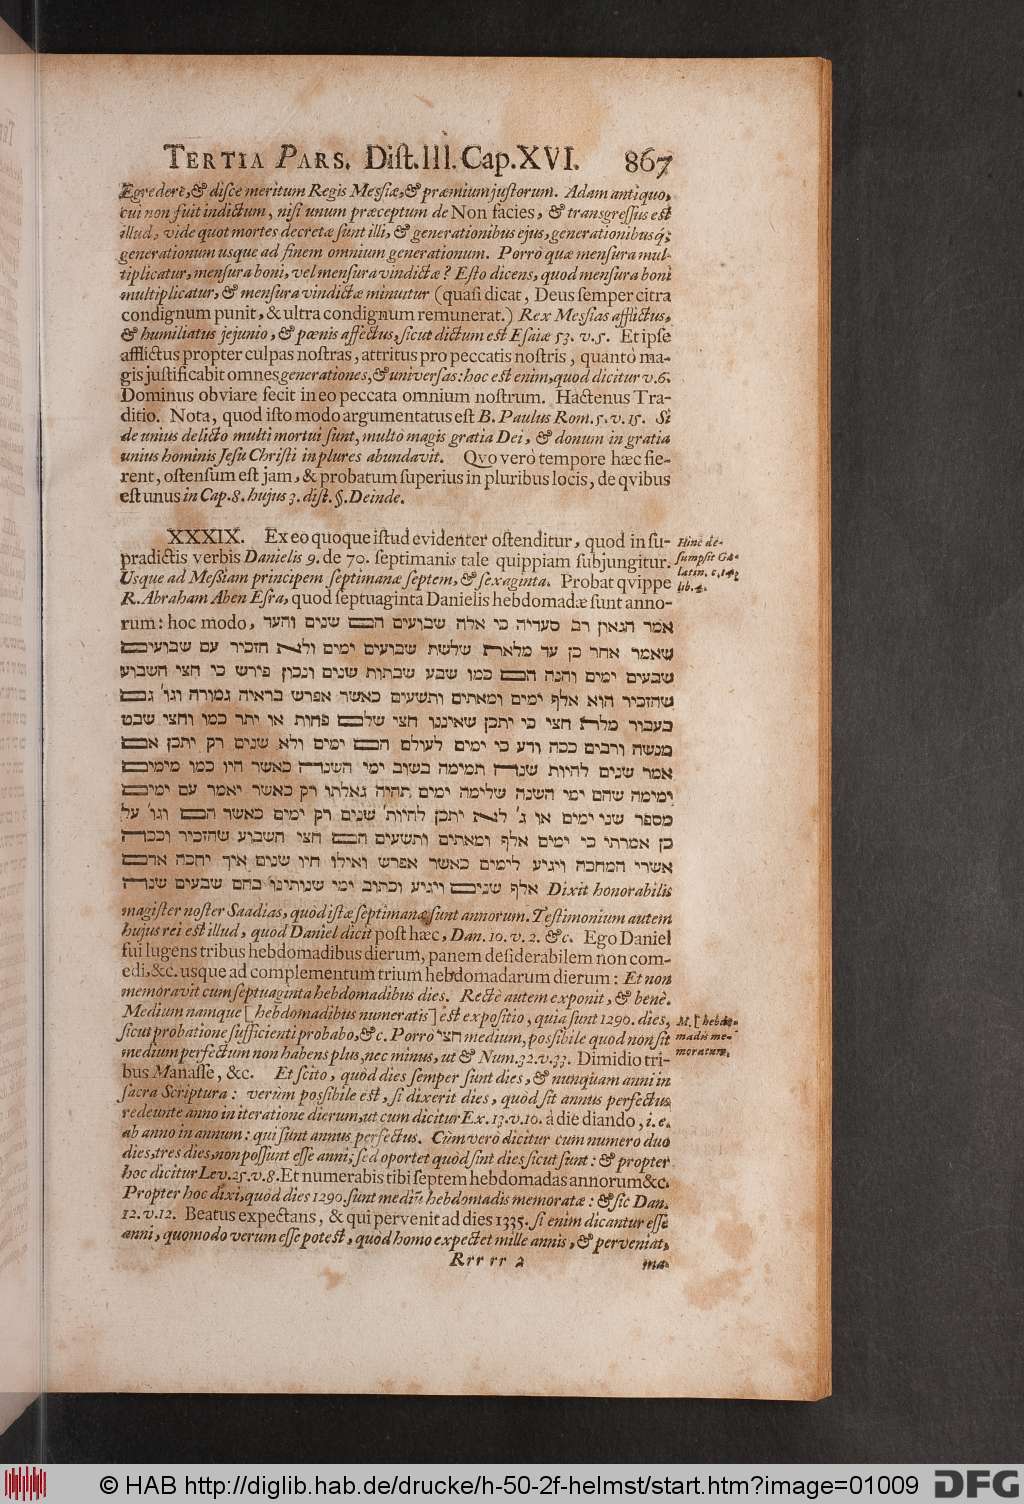 TERTIA PARS. Dist. III. Cap. XVI. 867
Egredere, & disce meritum Regis Messiæ, & præmium justorum. Adam antiquo,
cui non fuit indictum, nisi unum præceptum de Non facies, & transgressus est
illud, vide quot mortes decretæ sunt illi, & generationibus ejus, generationibusq;
generationum usque ad finem omnium generationum. Porrò quæ mensura mul-
tiplicatur, mensura boni, vel mensura vindictæ? Esto dicens, quod mensura boni
multiplicatur, & mensura vindictæ minuitur (quasi dicat, Deus semper citra
condignum punit, & ultra condignum remunerat.) Rex Messias afflictus,
& humiliatus jejunio, & pœnis affectus, sicut dictum est Esaiæ 53. v. 5. Et ipse
afflictus propter culpas nostras, attritus pro peccatis nostris, quantò ma-
gis justificabit omnes generationes, & universas: hoc est enim, quod dicitur v. 6.
Dominus obviare fecit in eo peccata omnium nostrum. Hactenus Tra-
ditio. Nota, quod isto modo argumentatus est B. Paulus Rom. 5. v. 15. Si
de unius delicto multi mortui sunt, multò magis gratia Dei, & donum in gratia
unius hominis Jesu Christi in plures abundavit. Qvo verò tempore hæc fie-
rent, ostensum est jam, & probatum superius in pluribus locis, de qvibus
est unus in Cap. 8. hujus 3. dist. §. Deinde.
XXXIX. Ex eo quoque istud evidenter ostenditur, quod in su-
pradictis verbis Danielis 9. de 70. septimanis tale quippiam subjungitur.
Usque ad Messiam principem septimanæ septem, & sexaginta. Probat qvippe
R. Abraham Aben Esra, quod septuaginta Danielis hebdomadæ sunt anno-
Hinc de-
sumpsit Ga-
latin. c. 14,
lib. 4.
rum: hoc modo, אמר הגאון רב סעדיה כי אלה שבועים הם שנים והעד
שאמר אחר כן עד מלאת שלשת שבועים ימים ולא הזכיר עם שבועים
שבעים ימים והנה הם כמו שבע שבתות שנים ונכון פירש כי חצי השבוע
שהזכיר הוא אלף ימים ומאתים ותשעים כאשר אפרש בראיה גמורה וגו' גם
בעבור מלת חצי כי יתכן שאיננו חצי שלם פחות או יתר כמו וחצי שבט
מנשה ורבים ככה ודע כי ימים לעולם הם ימים ולא שנים רק יתכן אם
אמר שנים להיות שנה תמימה בשוב ימי השנה כאשר היו כמו מימים
ימימה שהם ימי השנה שלימה ימים תהיה גאלתו רק כאשר יאמר עם ימים
מספר שני ימים או ג' לא יתכן להיות' שנים רק ימים כאשר הם וגו' על
כן אמרתי כי ימים אלף ומאתים ותשעים הם חצי השבוע שהזכיר וככה
אשרי המחכה ויגיע לימים כאשר אפרש ואילו היו שנים איך יחכה אדם
אלף שנים ויגיע וכתוב ימי שנותינו בהם שבעים שנה Dixit honorabilis
magister noster Saadias, quòd istæ septimanæ sunt annorum. Testimonium autem
hujus rei est illud, quod Daniel dicit post hæc, Dan. 10. v. 2. &c. Ego Daniel
fui lugens tribus hebdomadibus dierum, panem desiderabilem non com-
edi, &c. usque ad complementum trium hebdomadarum dierum: Et non
memoravit cum septuaginta hebdomadibus dies. Rectè autem exponit, & benè.
Medium namque [hebdomadibus numeratis] est expositio, quia sunt 1290. dies,
sicut probatione sufficienti probabo, &c. Porrò חצי medium, possibile quod non sit
medium perfectum non habens plus, nec minus, ut & Num. 32. v. 33. Dimidio tri-
M. [hebdo-
madis me-
moratum.
bus Manasse, &c. Et scito, quòd dies semper sunt dies, & nunquam anni in
sacra Scriptura: verùm possibile est, si dixerit dies, quòd sit annus perfectus
redeunte anno in iteratione dierum, ut cum dicitur Ex. 13. v. 10. à die diando, i. e.
ab anno in annum: qui sunt annus perfectus. Cùm verò dicitur cum numero duo
dies, tres dies, non possunt esse anni; sed oportet quòd sint dies sicut sunt: & propter
hoc dicitur Lev. 25. v. 8. Et numerabis tibi septem hebdomadas annorum &c.
Propter hoc dixi, quòd dies 1290. sunt mediũ hebdomadis memoratæ: & sic Dan.
12. v. 12. Beatus expectans, & qui pervenit ad dies 1335. si enim dicantur esse
anni, quomodo verum esse potest, quòd homo expectet mille annis, & perveniat,
Rrr rr 2 ma-
© HAB http://diglib.hab.de/drucke/h-50-2f-helmst/start.htm?image=01009 DFG